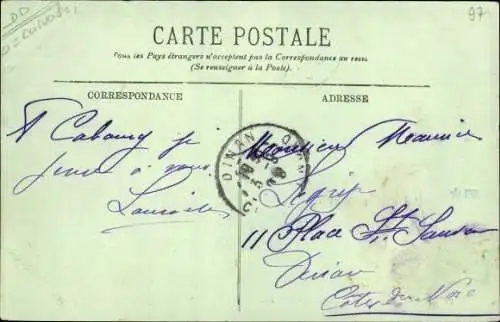 97
CARTE POSTALE
Tous les Pays étrangers n'acceptent pas la Correspondance au recto
(Se renseigner à la Poste).
CORRESPONDANCE
ADRESSE
A Cabourg je
pense à vous
DINAN
Monsieur Maurice
11 Place St. Sauveur
Dinan
Cotes du Nord